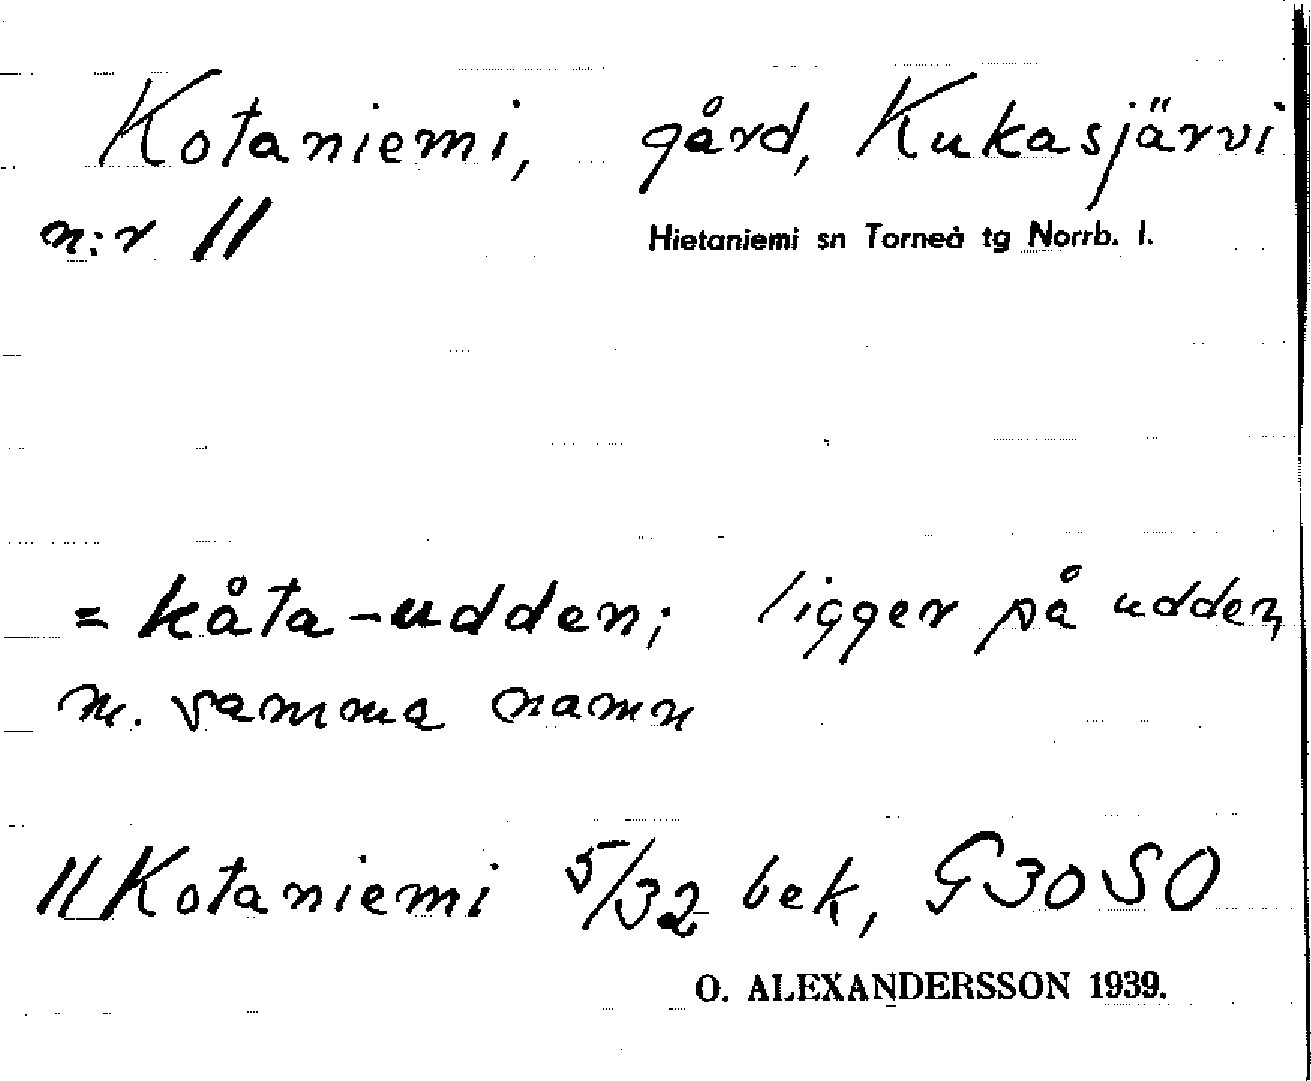 Kotaniemi, gård, Kukasjärvi
n:r 11
Hietaniemi sn Torneå tg Norrb. l.
= kåta-udden; ligger på udden,
m. samma namn
11 Kotaniemi 5/32 bek, G30SO
O. ALEXANDERSSON 1939.